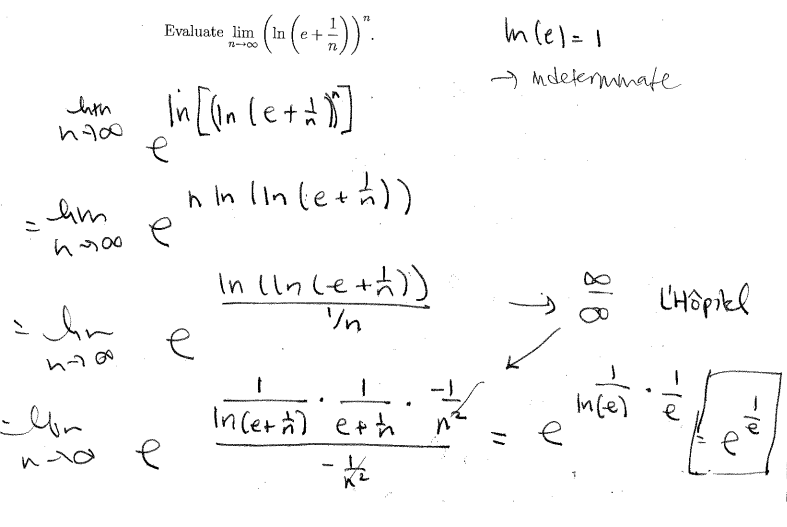 Evaluate lim_{n→∞} (ln(e + 1/n))^n.
ln(e) = 1
→ indeterminate
lim_{n→∞} e^{ln[(ln(e + 1/n))^n]}
= lim_{n→∞} e^{n ln(ln(e + 1/n))}
= lim_{n→∞} e^{ln(ln(e + 1/n)) / 1/n} → ∞/∞ L'Hôpital
= lim_{n→∞} e^{(1/ln(e + 1/n) · 1/(e + 1/n) · -1/n^2) / (-1/n^2)} = e^{1/ln(e) · 1/e} = e^{1/e}